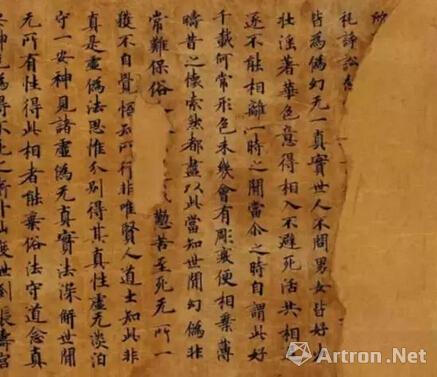 礼諍訟
皆為偽幻无一真實世人不問男女皆好少
壯滛著華色意得相入不避死活共相
逐不能相離一時之間當尒之時自謂此好
千載何常形色未幾會有彫衰便相棄薄
疇昔之懷索然都盡以此當知世間幻偽非
常難保俗 懃苦至死无所一
獲不自覺悟知所行非唯賢人道士知此非
真是虛偽法思惟分別得其真性虛无淡泊
守一安神見諸虛偽无真實法深解世間
无所有性得此相者能棄俗法守道念真
安神 得不死之術升仙度世到長壽宮
Artron.Net